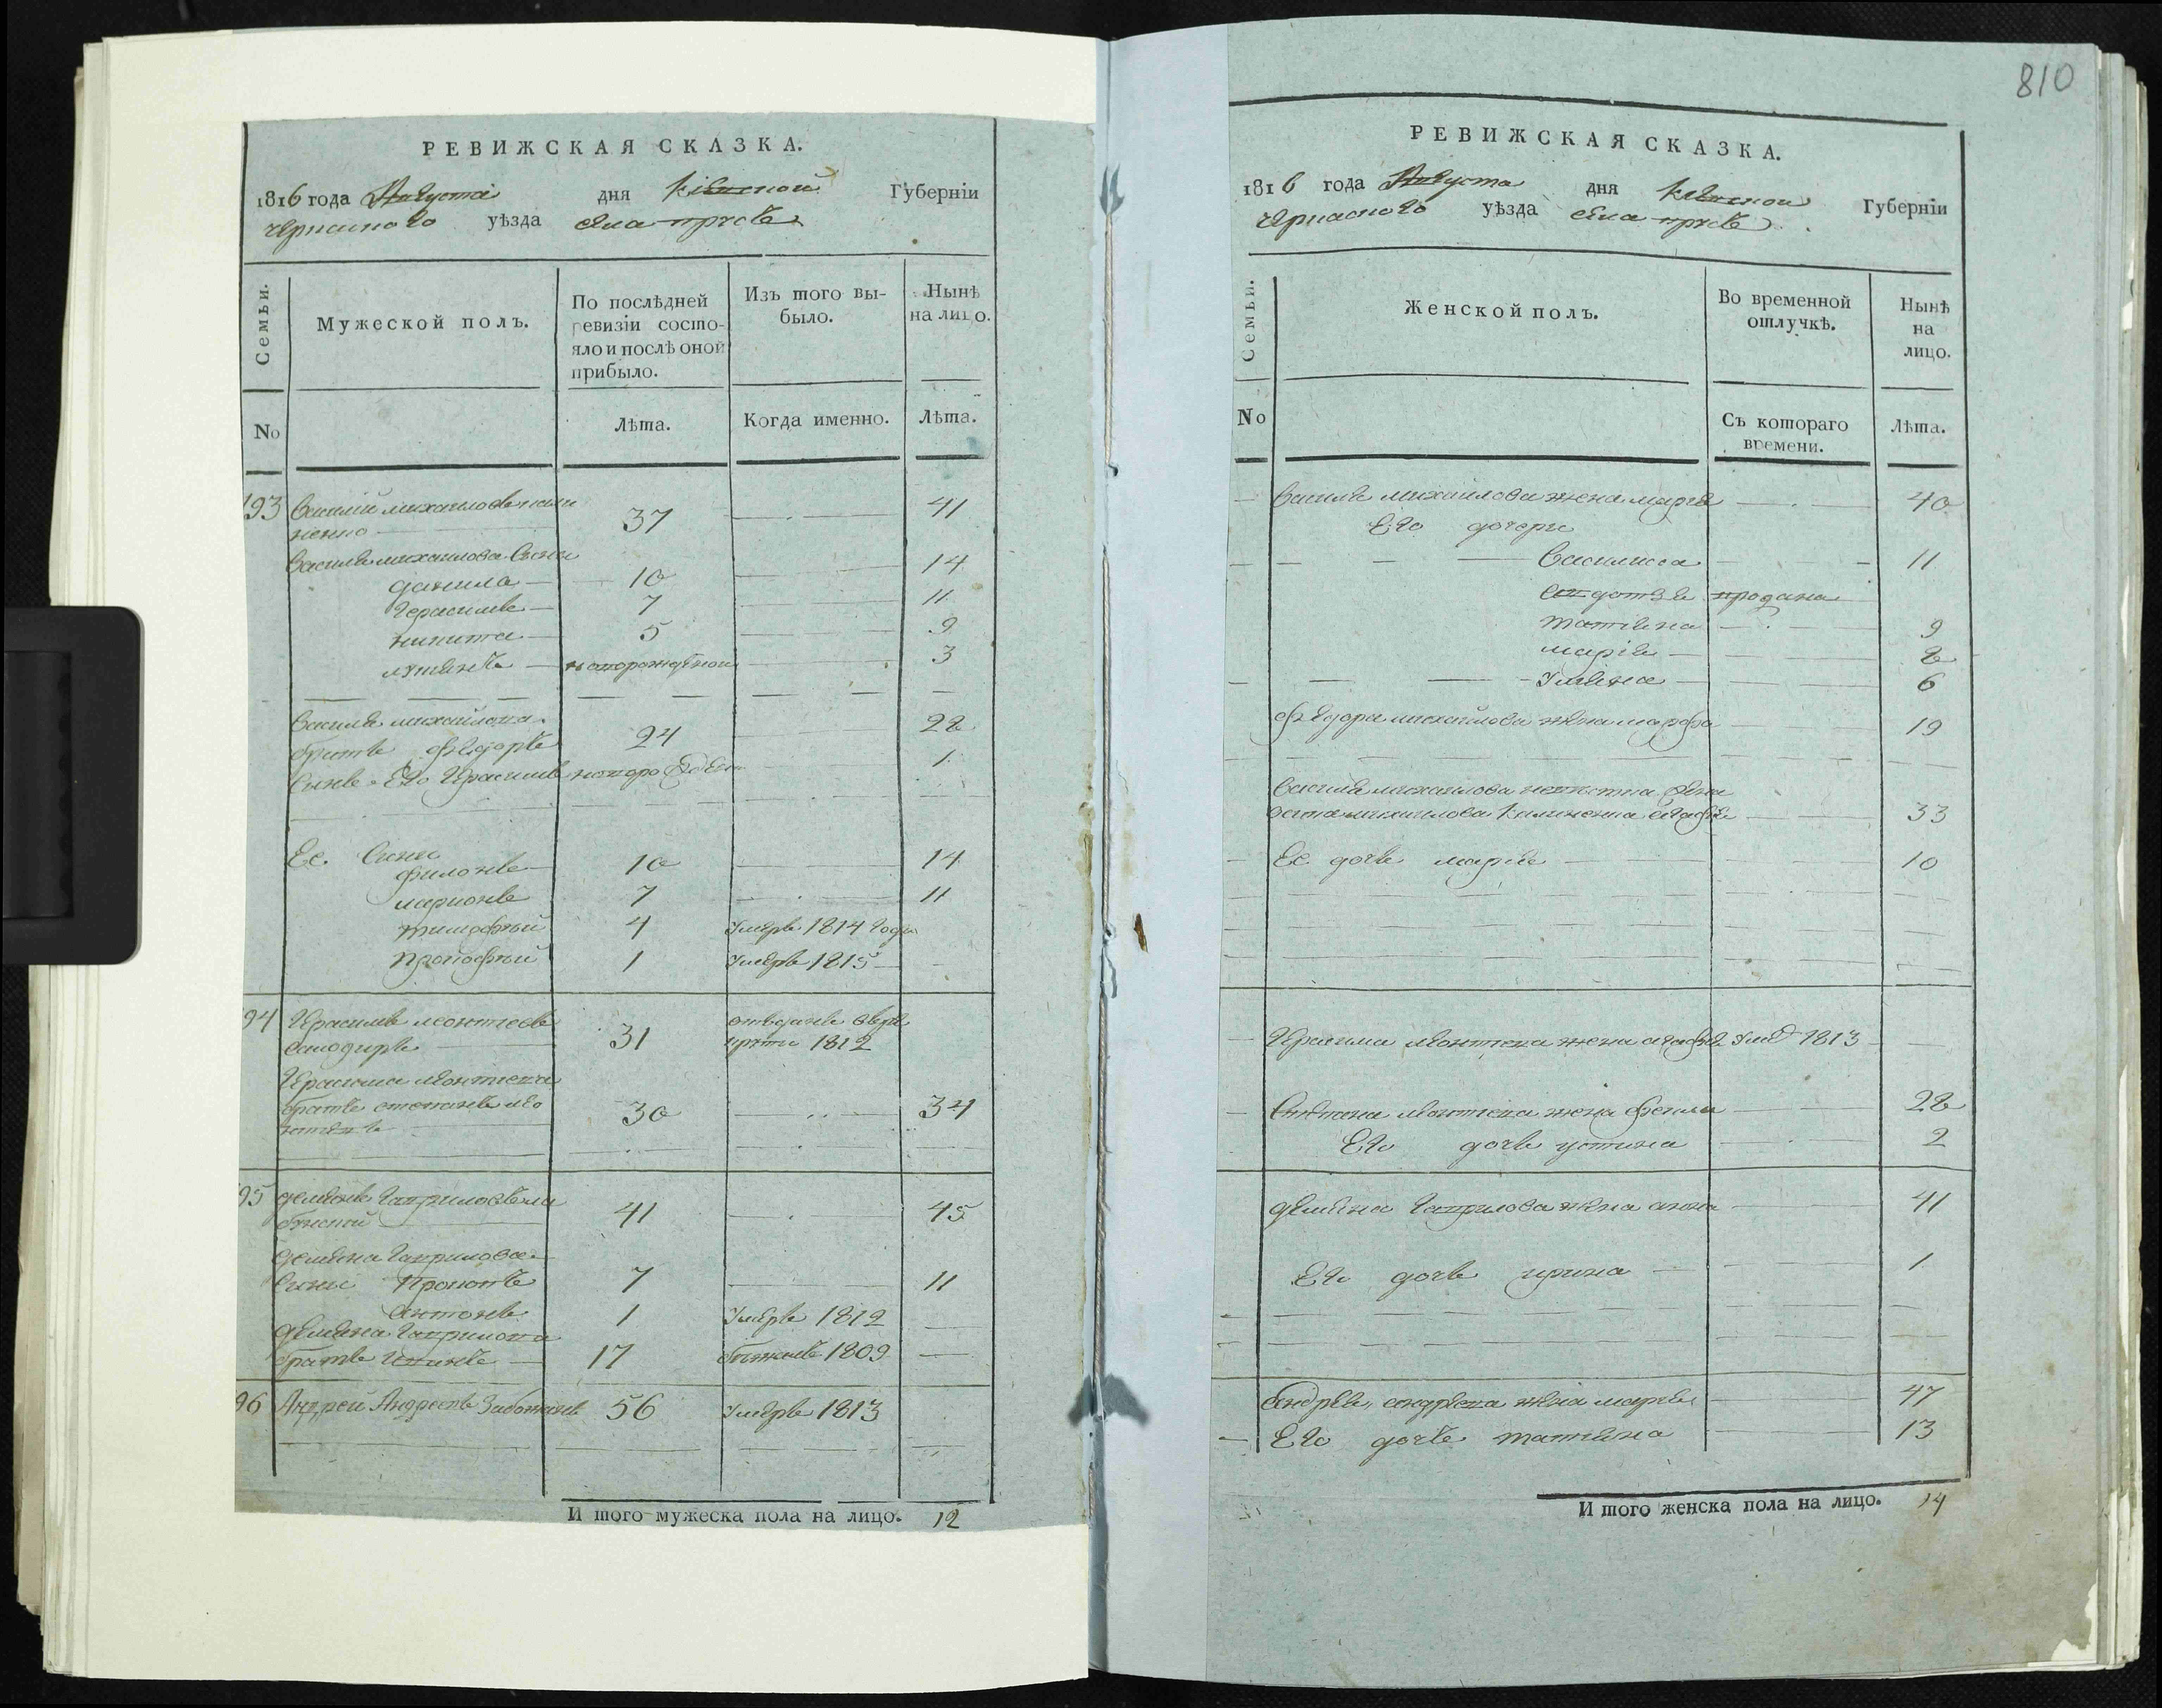 810
РЕВИЖСКАЯ СКАЗКА.
1816 года Августа дня Кіевской Губерніи
Черкаского уѣзда села прусъ
Семьи.
Мужеской полъ.
По послѣдней ревизіи состо-
яло и послѣ оной
прибыло.
Изъ того вы-
было.
Нынѣ
на лицо.
No
Лѣта.
Когда именно.
Лѣта.
193 Василій михаиловъ кали
ненко 37 41
Василя михаилова Сыни
данила 10 14
Герасимъ 7 11
никита 5 9
новорожденой 3
Василя михайлова
братъ федоръ 24 28
Сынъ Его Герасимъ 1
Ее Сыни
филонъ 10 14
ларионъ 7 11
тимофѣй 4 Умеръ 1814 года
Прокофѣй 1 Умеръ 1815
94 Герасимъ леонтіевъ 31 1812
Герасима леонтіева
братъ степанъ лео 30 34
95 демянъ Гавриловъ 41 45
демяна Гаврилова
Сыни Прокопъ 7 11
Антонъ 1 Умеръ 1812
демяна Гаврилова
братъ 17 бѣжалъ 1809
96 Андрей Андреевъ 56 Умеръ 1813
И того мужеска пола на лицо. 12
РЕВИЖСКАЯ СКАЗКА.
1816 года Августа дня Кіевской Губерніи
Черкаского уѣзда села прусъ
Семьи.
Женской полъ.
Во временной
отлучкѣ.
Нынѣ
на
лицо.
No
Съ котораго
времени.
Лѣта.
Василя михаилова жена марія 40
Его дочери
Василиса 11
продана
татіяна 9
марія 8
Уляна 6
федора михайлова жена марфа 19
Василя михаилова невистка
михаилова Калиненка 33
Ее дочь марія 10
Герасима леонтева жена агафія 1813
Степана леонтева жена фекла 28
Его дочь устина 2
демяна Гаврилова жена анна 41
Его дочь ирина 1
андрея андреева жена марія 47
Его дочь татіяна 13
И того женска пола на лицо. 14